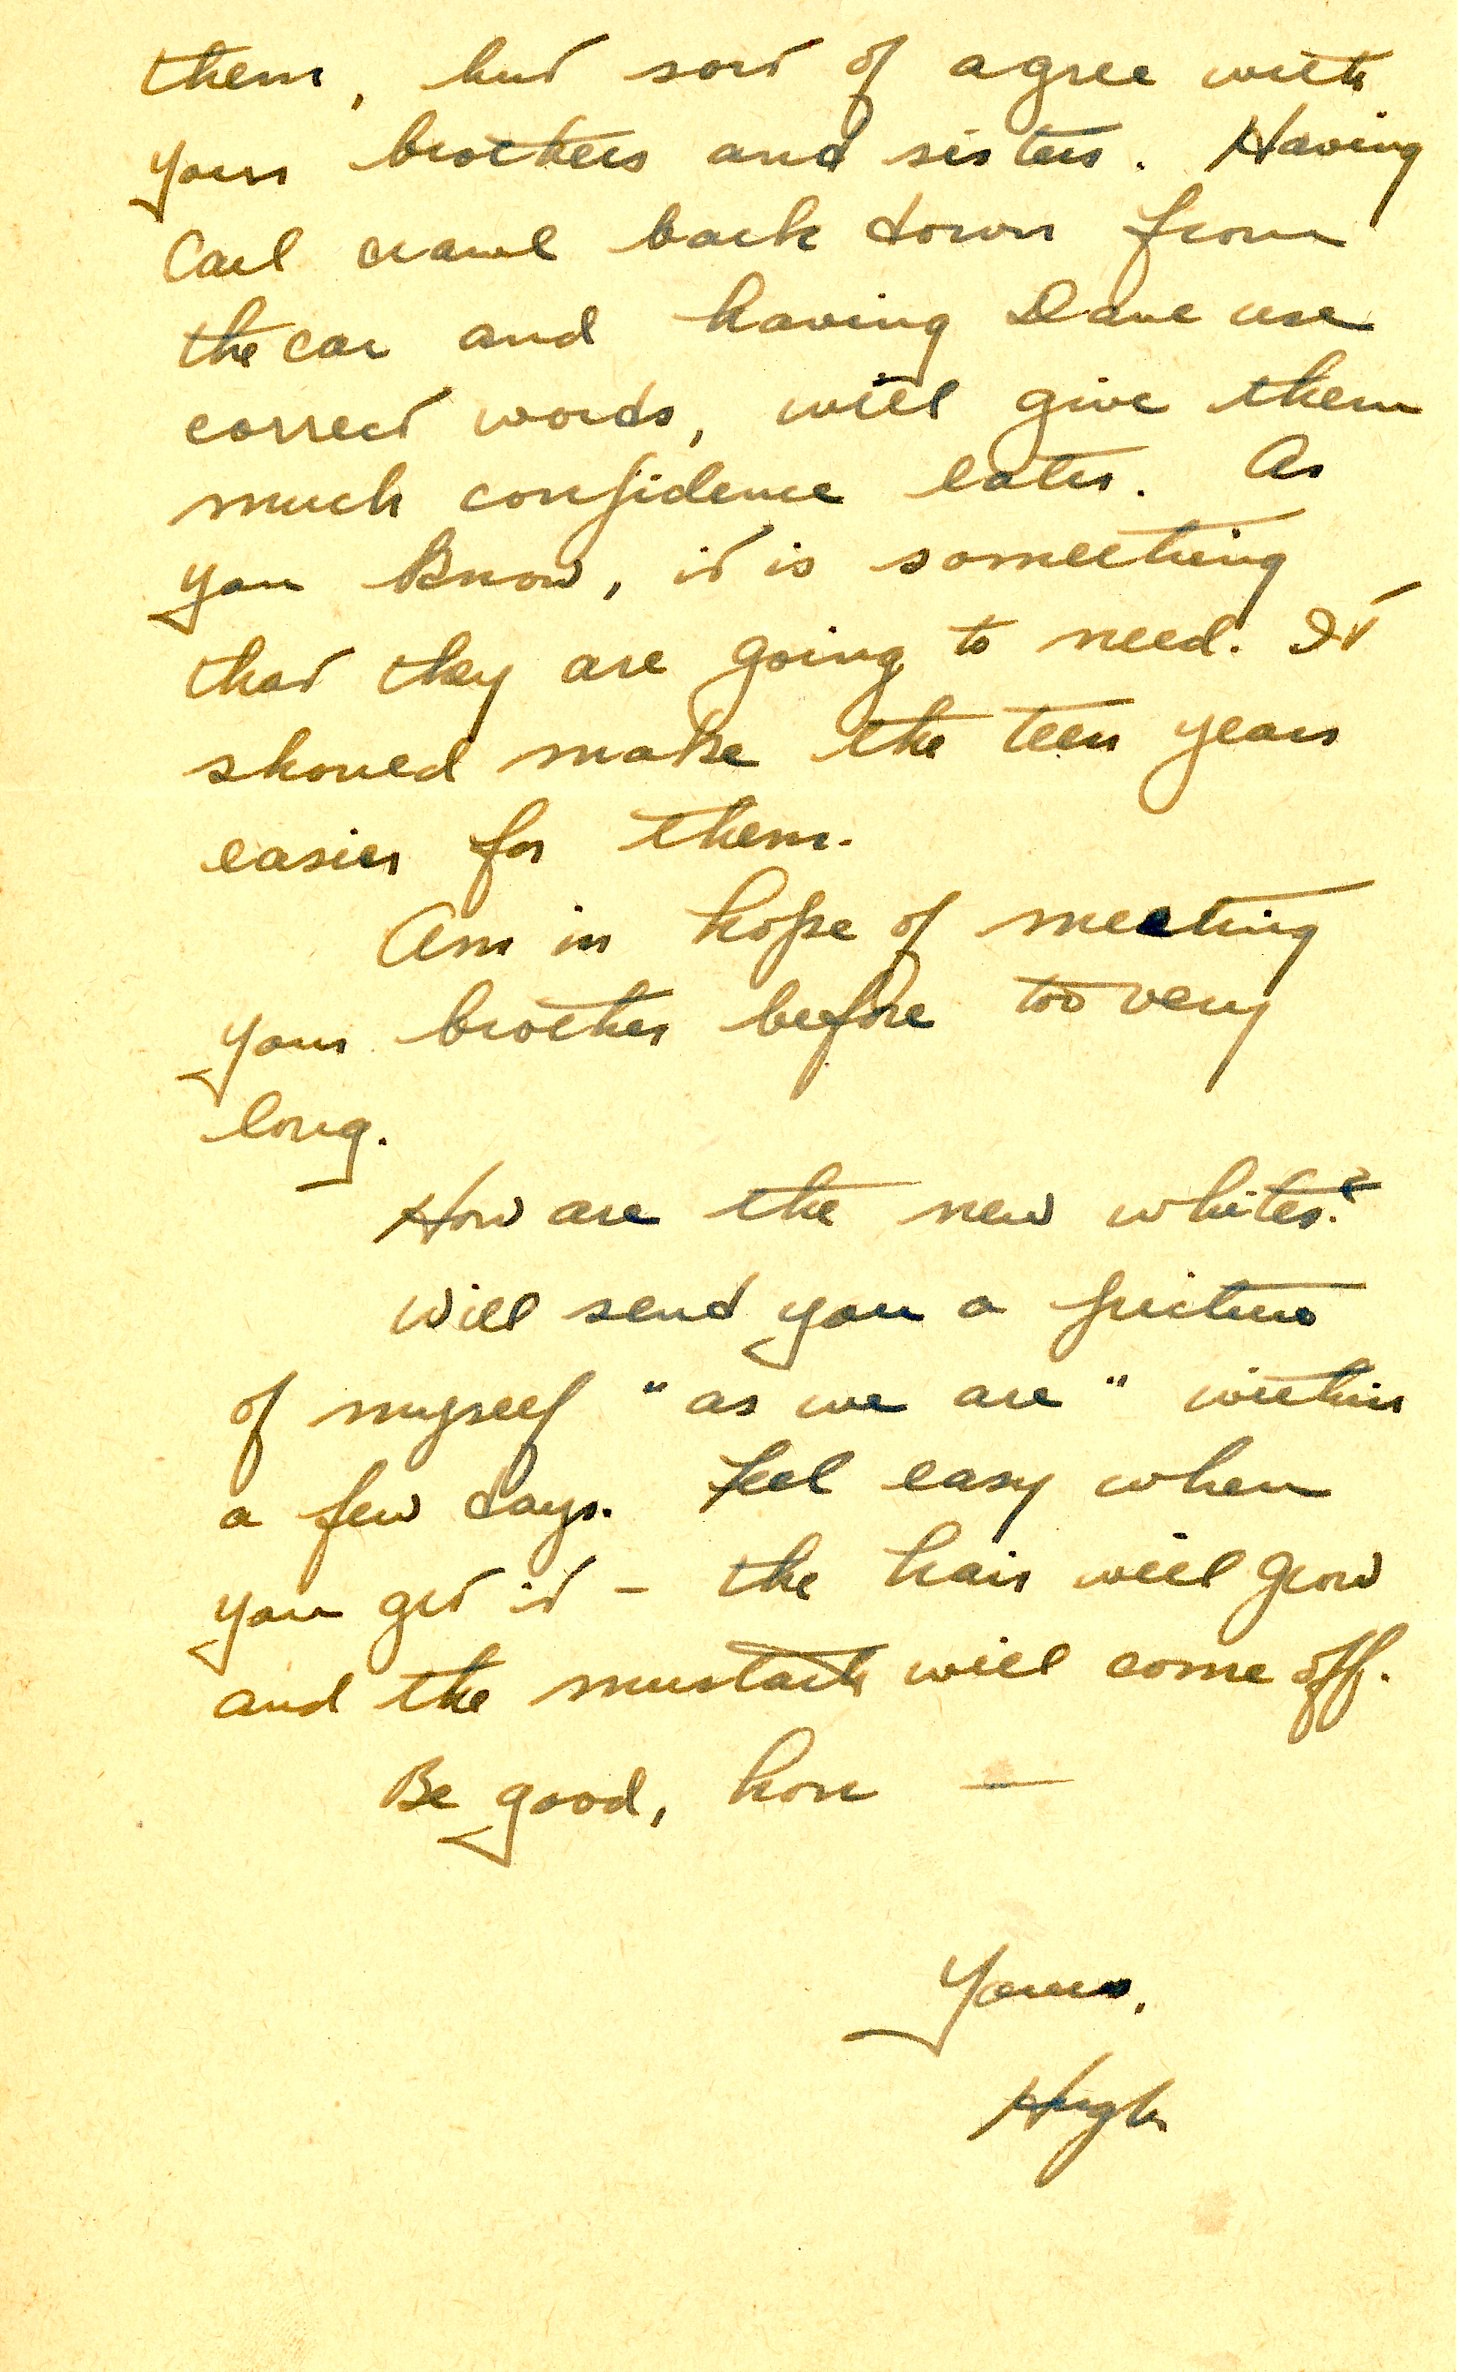 them, but sort of agree with
your brothers and sisters. Having
Carl crawl back down from
the car and having Dave use
correct words, will give them
much confidence later. As
you know, it is something
that they are going to need. It
should make the teen years
easier for them.
Am in hope of meeting
your brother before too very
long.
How are the new whites?
Will send you a picture
of myself "as we are" within
a few days. Feel easy when
you get it - the hair will grow
and the mustach will come off.
Be good, hon —
Yours,
Hugh